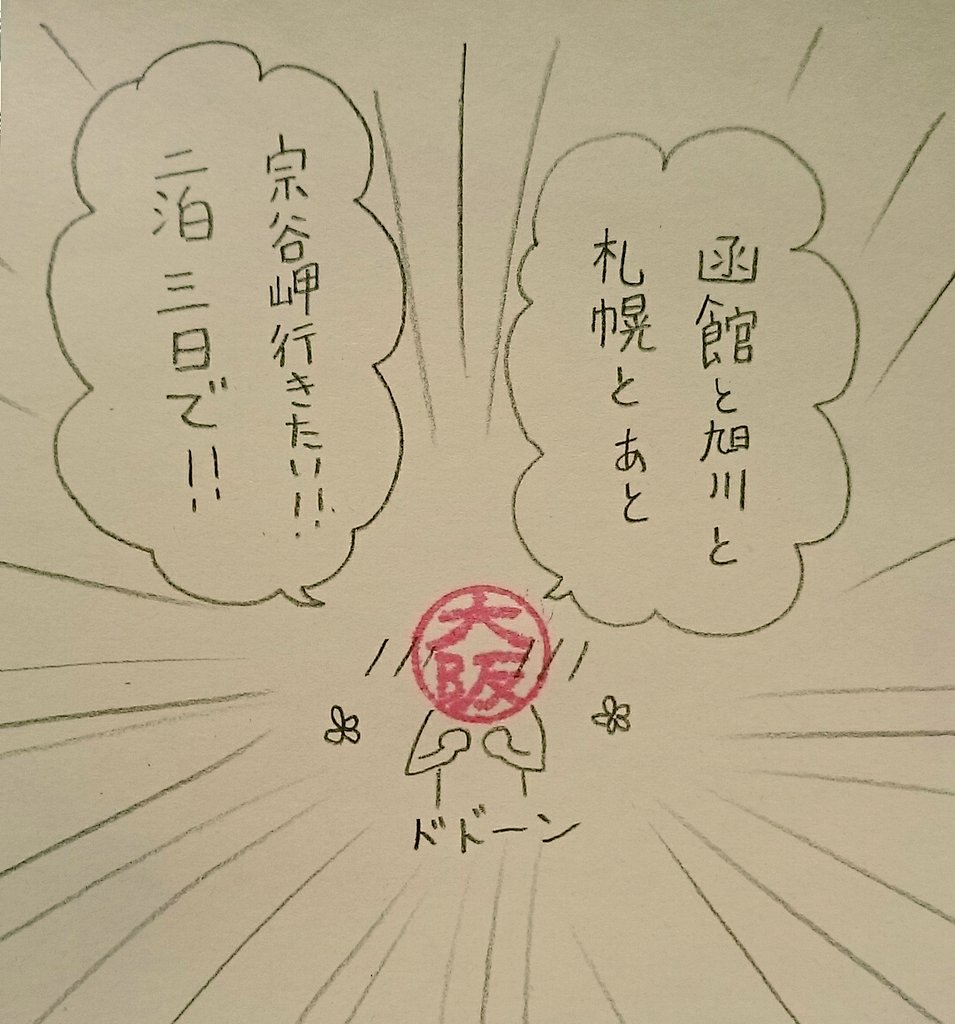 函館と旭川と
札幌とあと
宗谷岬行きたい!!
二泊三日で!!
大阪
ドドーン